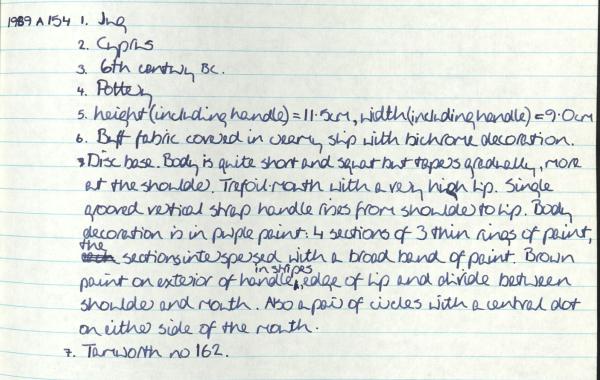 1989 A 154 1. Jug
2. Cyprus
3. 6th century BC.
4. Pottery
5. height (including handle) = 11.5cm, width (including handle) = 9.0cm
6. Buff fabric covered in creamy slip with bichrome decoration.
Disc base. Body is quite short and squat but tapers gradually, more
at the shoulder. Trefoil mouth with a very high lip. Single
grooved vertical strap handle rises from shoulder to lip. Body
decoration is in purple paint. 4 sections of 3 thin rings of paint,
the sections interspersed with a broad band of paint. Brown
paint on exterior of handle in stripes, edge of lip and divide between
shoulder and mouth. Also a pair of circles with a central dot
on either side of the mouth.
7. Tamworth no 162.